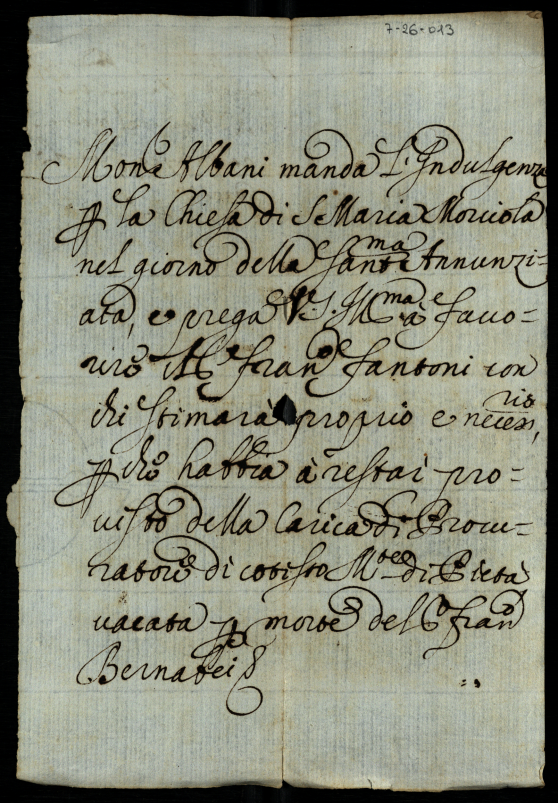 7-26-013
Mons.e Albani manda L'Indulgenza
p la Chiesa di S Maria Morciola
nel giorno della Sant.ma Annunzi=
ata, e prega V.S. Ill.ma à favo=
rire il S.e Fran.o Fantoni con
chi stimarà proprio e necess.rio,
p che habbia à restar pro=
visto della Carica di Procu=
ratore di cotesto M.te di Pietà
vacata p morte del S.e Fran.o
Bernabei